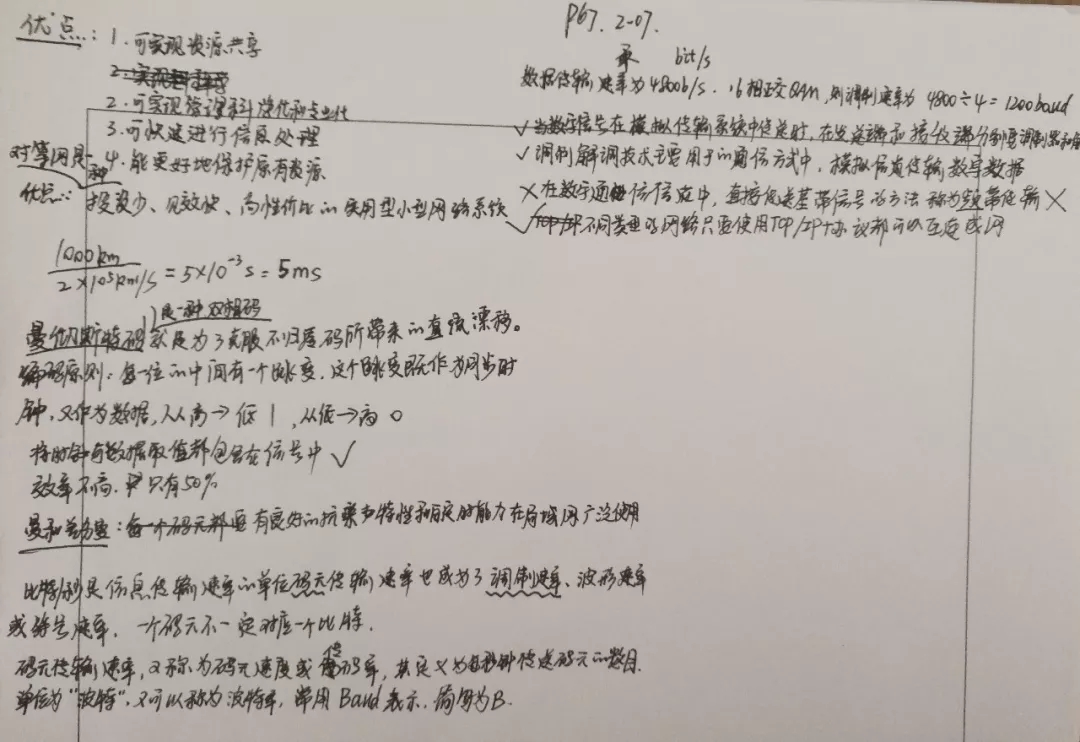 优点：1.可实现资源共享
2.可实现管理科学化和专业化
3.可快速进行信息处理
4.能更好地保护原有资源
对等网是一种
优点：投资少、见效快、高性价比的实用型小型网络系统
1000km / 2×10⁵km/s = 5×10⁻³s = 5ms
是一种双相码
曼彻斯特码 就是为了克服不归零码所带来的直流漂移。
编码原则：每一位的中间有一个跳变，这个跳变既作为同步时
钟，又作为数据，从高→低 1，从低→高 0
将时钟与数据取值都包含在信号中 ✓
效率不高，只有50%
曼和差分曼：每个码元都 有良好的抗干扰特性和同步能力在局域网广泛使用
比特/秒是信息传输速率的单位码元传输速率也成为了调制速率、波形速率
或符号速率，一个码元不一定对应一个比特.
码元传输速率，又称为码元速度或传码率，其定义为每秒钟传送码元的数目.
单位为"波特"，又可以称为波特率，常用Baud表示，简写为B.
P67. 2-07.
bit/s
数据传输速率为4800b/s. 16相正交QAM，则调制速率为 4800÷4=1200baud
✓当数字信号在模拟传输系统中传送时，在发送端和接收端分别要调制器和解
✓调制解调技术主要用于的通信方式中，模拟信道传输数字数据
×在数字通信信道中，直接传送基带信号的方法称为频带传输 ×
✓不同类型的网络只要使用TCP/IP协议都可以互连成网